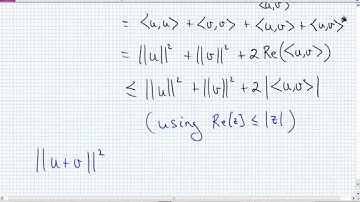 <u,v>
= <u,u> + <v,v> + <u,v> + <u,v>*
= ||u||² + ||v||² + 2 Re(<u,v>)
≤ ||u||² + ||v||² + 2|<u,v>|
(using Re[z] ≤ |z|)
||u+v||²